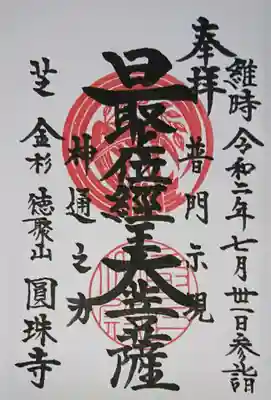 維時 令和二年七月卅一日参詣
奉拝
普門示現
最位經王大菩薩
神通之力
芝 金杉 徳聚山 圓珠寺